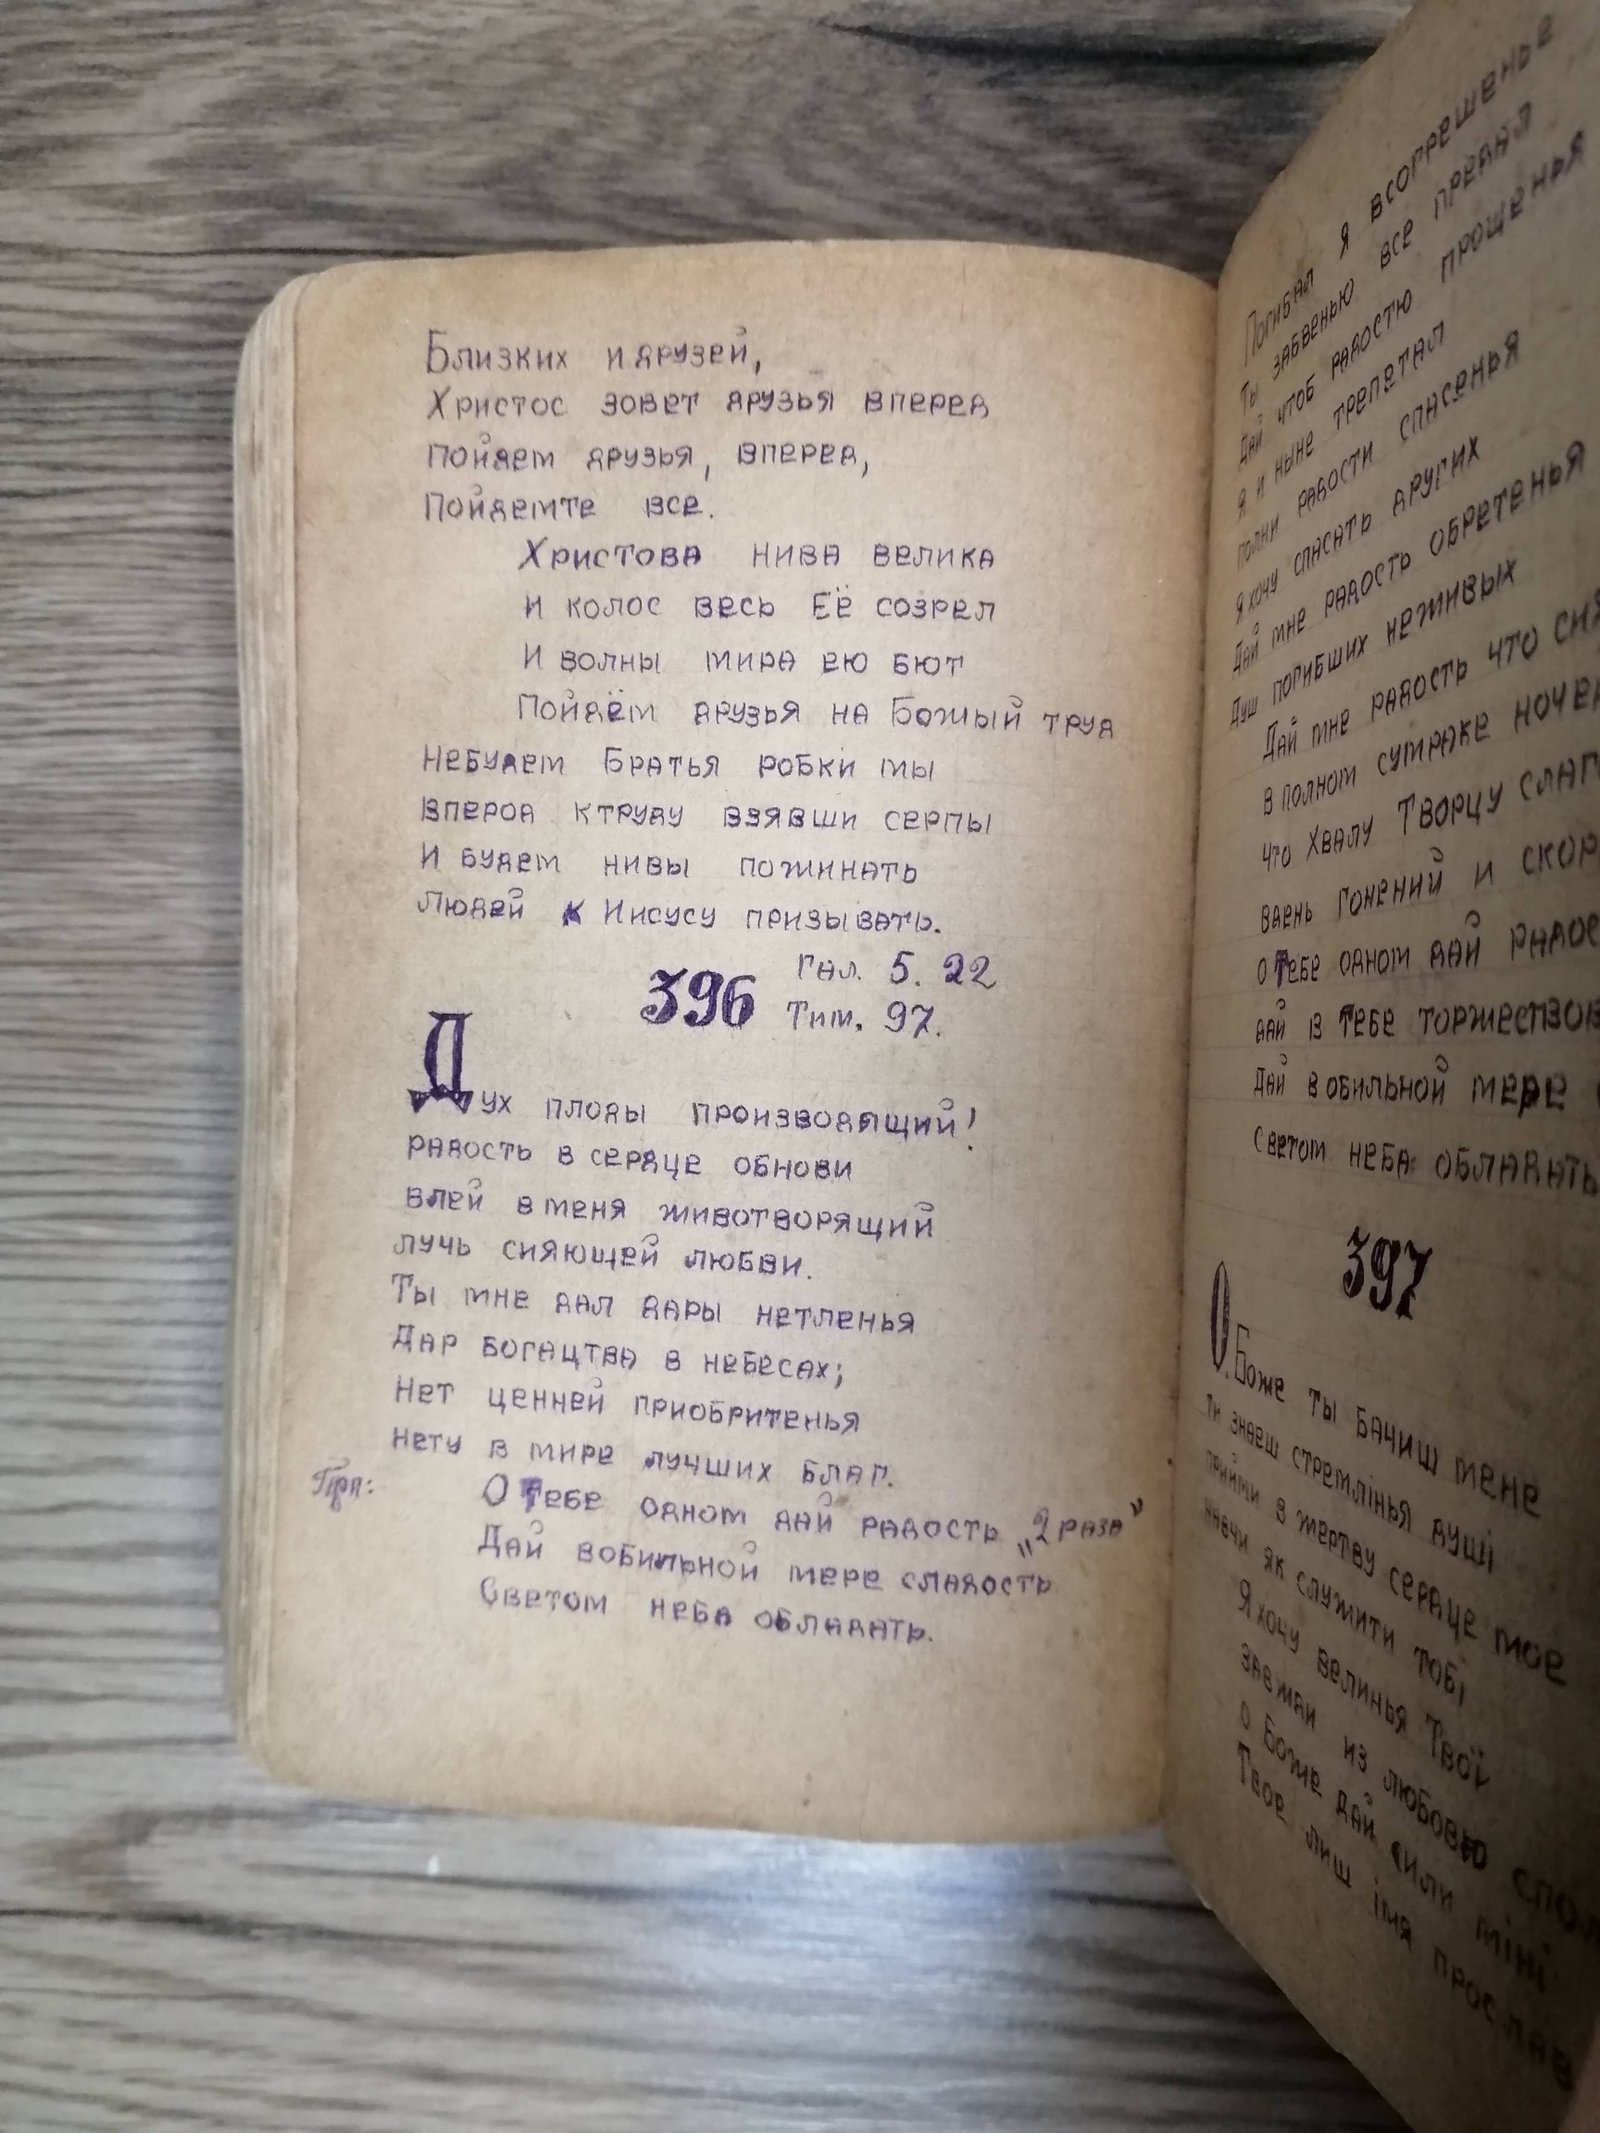 Близких и друзей,
Христос зовет друзья вперед
пойдем друзья, вперед,
Пойдемте все.
Христова нива велика
и колос весь Её созрел
И волны мира ею бют
Пойдём друзья на Божый труд
Небудем Братья робки мы
вперод ктруду взявши серпы
И будем нивы пожинать
Людей к Иисусу призывать.
396 Гал. 5. 22
Тим. 97.
Дух плоды производящий!
радость в сердце обнови
влей в меня животворящий
лучь сияющей любви.
Ты мне дал дары нетленья
Дар богацтва в небесах;
Нет ценней приобритенья
нету в мире лучших благ.
Прп: О Тебе одном дай радость „2 раза"
Дай вобильной мере сладость
Светом неба обладать.
Погибал я всогрешенье
Ты забвенью все предал
Дай чтоб радостю прощенья
Я и ныне трепетал
полни радости спасенья
Я хочу спасать других
Дай мне радость обретенья
Душ погибших неживых
Дай мне радость что сия
в полном сумраке ночей
что Хвалу Творцу слаг
вдень гонений и скор
О Тебе одном дай радос
дай в Тебе торжествов
Дай вобильной мере
светом неба обладать
397
О. Боже ты бачиш мене
ти знаеш стремлінья душі
прийми в жертву сердце мое
навчи як служити тобі
Я хочу велинья Твої
завжди из любовю спол
о Боже дай сили міні
Твое лиш імя прослав